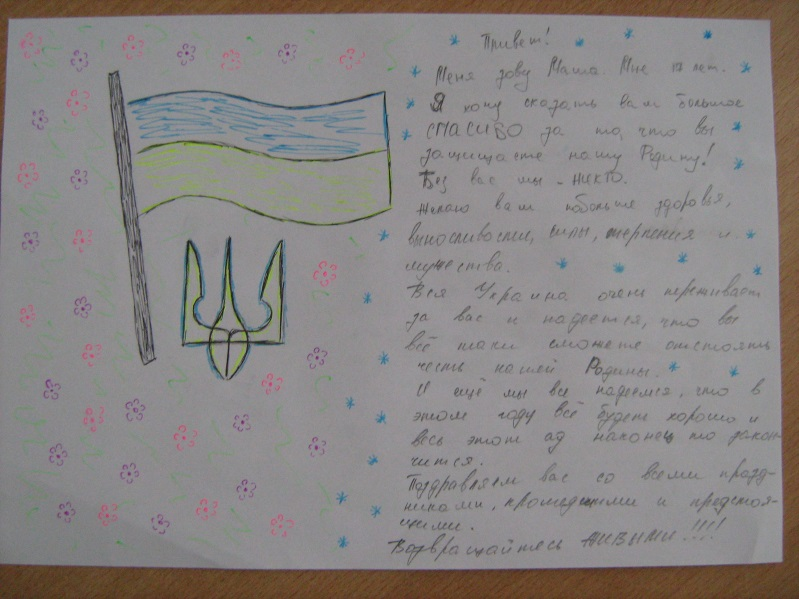 Привет!
Меня зову Маша. Мне лет.
Я хочу сказать вам большое
СПАСИБО за то, что вы
защищаете нашу Родину!
Без вас мы - НИКТО.
Желаю вам побольше здоровья,
выносливости, силы, терпения и
мужества.
Вся Украина очень переживает
за вас и надеется, что вы
всё таки сможете отстоять
честь нашей Родины.
И ещё мы все надеемся, что в
этом году всё будет хорошо и
весь этот ад наконец то закон-
чится.
Поздравляем вас со всеми празд-
никами, прошедшими и предстоя-
щими.
Возвращайтесь ЖИВЫМИ!!!!